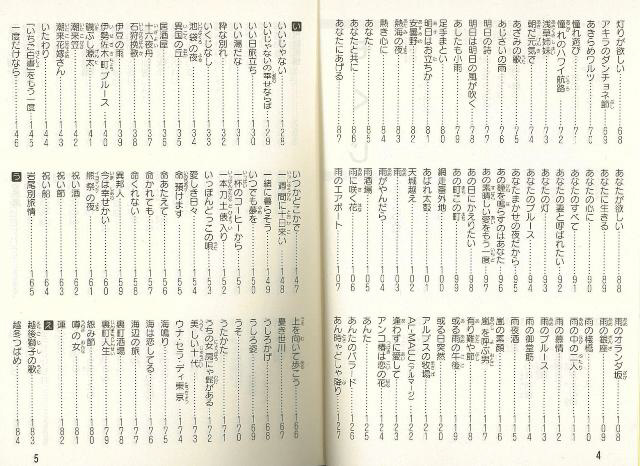 灯りが欲しい……68
アキラのダンチョネ節……69
あきらめワルツ……70
憧れ遊び……71
憧れのハワイ航路……72
浅草姉妹……73
朝だ元気で……74
あざみの歌……75
あじさいの雨……76
明日の詩……77
明日は明日の風が吹く……78
あしたも小雨……79
足手まとい……80
明日はお立ちか……81
安曇野……82
熱海の夜……83
熱き心に……84
あなた……85
あなたと共に……86
あなたにあげる……87
あなたが欲しい……88
あなたに生きる……89
あなたの心に……90
あなたのすべて……91
あなたの妻と呼ばれたい……92
あなたの灯……93
あなたのブルース……94
あなたまかせの夜だから……95
あの鐘を鳴らすのはあなた……96
あの素晴しい愛をもう一度……97
あの日にかえりたい……98
あの町この町……99
網走番外地……100
あばれ太鼓……101
天城越え……102
雨……103
雨がやんだら……104
雨酒場……105
雨に咲く花……106
雨のエアポート……107
雨のオランダ坂……108
雨の銀座……109
雨の桟橋……110
雨の中の二人……111
雨の慕情……112
雨のブルース……113
雨の御堂筋……114
雨夜酒……115
嵐の素顔……116
嵐を呼ぶ男……117
有り難や節……118
或る雨の午後……119
或る日突然……120
アルプスの牧場……121
AL-MAUJ(アルマージ)……122
逢わずに愛して……123
アンコ椿は恋の花……124
あんた……125
あんたのバラード……126
あん時ゃどしゃ降り……127
4
い
いいじゃない……128
いいじゃないの幸せならば……129
いい日旅立ち……130
いい湯だな……131
粋な別れ……132
いくじなし……133
池袋の夜……134
異国の丘……135
居酒屋……136
十六夜舟……137
石狩挽歌……138
伊豆の雨……139
伊勢佐木町ブルース……140
磯ぶし源太……141
潮来笠……142
潮来花嫁さん……143
いたわり……144
「いちご白書」をもう一度……145
一度だけなら……146
いつかどこかで……147
一週間に十日来い……148
一緒に暮らそう……149
いつでも夢を……150
一杯のコーヒーから……151
一本刀土俵入り……152
いっぽんどっこの唄……153
愛しき日々……154
命預けます……155
命あたえて……156
命かれても……157
命くれない……158
異邦人……159
今は幸せかい……160
熊祭の夜……161
祝い酒……162
祝い節……163
祝い船……164
岩尾別旅情……165
う
上を向いて歩こう……166
憂き世川……167
うしろかげ……168
うしろ姿……169
うそ……170
うたかた……171
うちの女房にゃ髭がある……172
美しい十代……173
ウナ・セラ・ディ東京……174
海鳴り……175
海は恋してる……176
海辺の旅……177
裏町酒場……178
裏町人生……179
怨み節……180
噂の女……181
運……182
え
越後獅子の歌……183
越冬つばめ……184
5